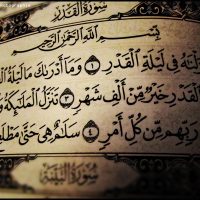 سُورَةُ الْقَدْرِ
بِسْمِ اللَّهِ الرَّحْمَٰنِ الرَّحِيمِ
نْزَلْنَاهُ فِي لَيْلَةِ الْقَدْرِ ١ وَمَا أَدْرَاكَ مَا لَيْلَةُ
الْقَدْرِ خَيْرٌ مِنْ أَلْفِ شَهْرٍ ٣ تَنَزَّلُ الْمَلَائِكَةُ وَ
رَبِّهِمْ مِنْ كُلِّ أَمْرٍ ٤ سَلَامٌ هِيَ حَتَّى مَطْلَعِ
سُورَةُ الْبَيِّنَةِ